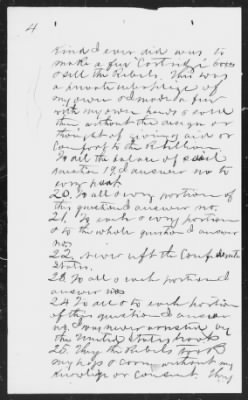 4
kind I ever did was to
make a few Cartridge boxes
& sell the Rebels. This was
a private enterprise of
my own I made a few
with my own hands & sold
them without the design or
thought of giving aid or
Comfort to the Rebellion.
To all the balance of
question 19 I answer no to
every part
20. To all & every portion of
this question I answer no.
21. To each & every portion
& to the whole question I answer
no
22. Never left the Confederate
States.
23. To all & each portion I
answer no
24 To all & to each portion
of this question I answer
no, I was never arrested by
the United States
25. They the Rebels took
my hogs & corn without my
knowledge or consent. They